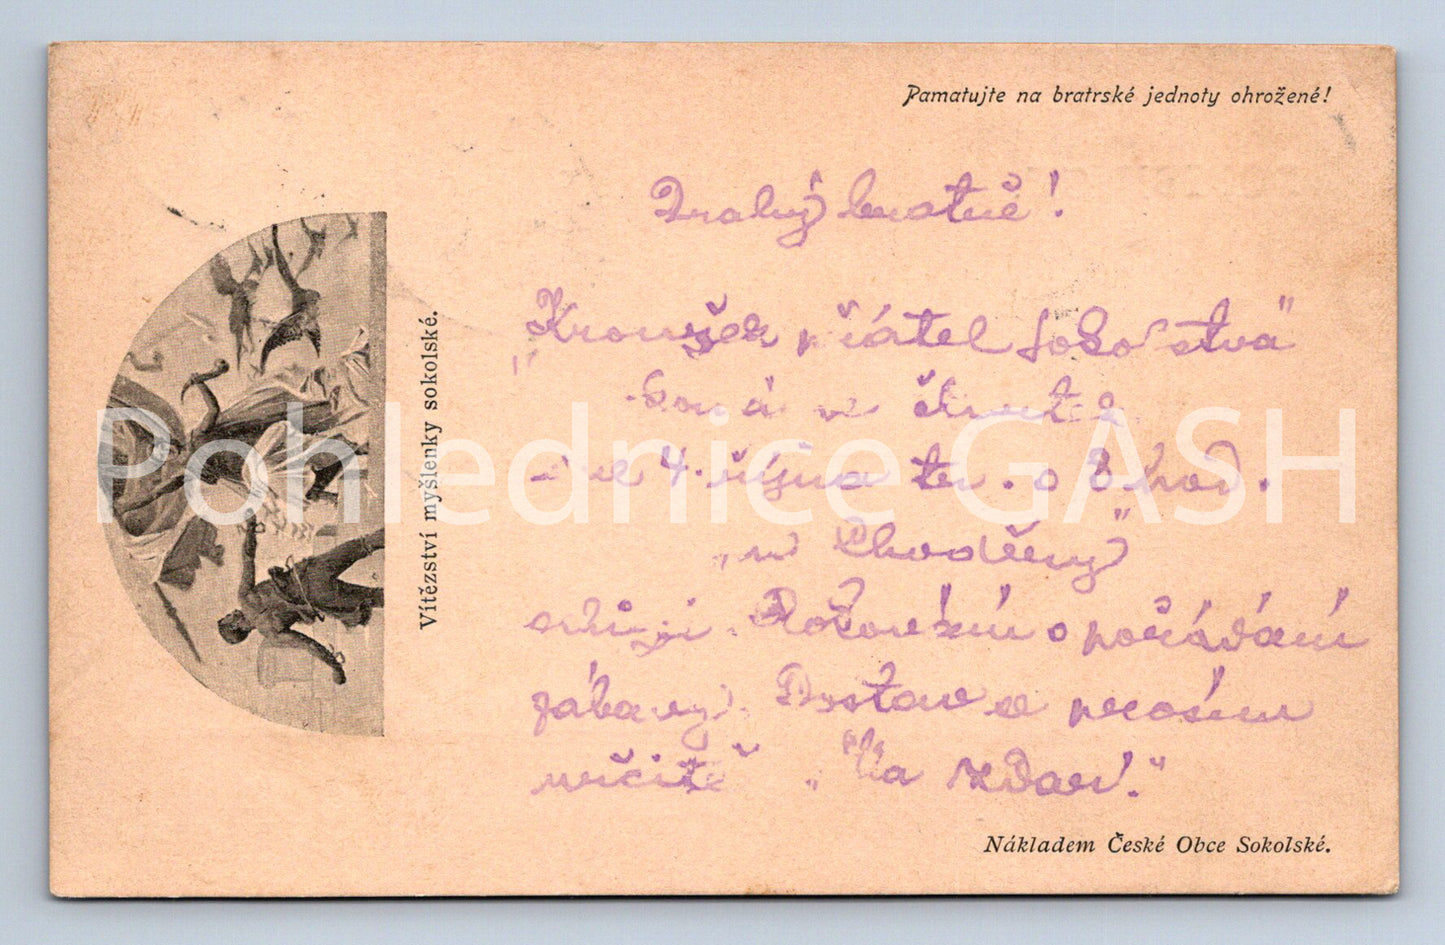 Pamatujte na bratrské jednoty ohrožené!
Drahý bratře!
„Kroužek přátel Sokolstva"
koná ve čtvrtek
4. října t.r. o 8 hod.
„u Choděry"
schůzi. Rokování o pořádání
zábavy. Dostav se prosím
určitě. „Na zdar!"
Vítězství myšlenky sokolské.
Nákladem České Obce Sokolské.
Pohlednice GASH